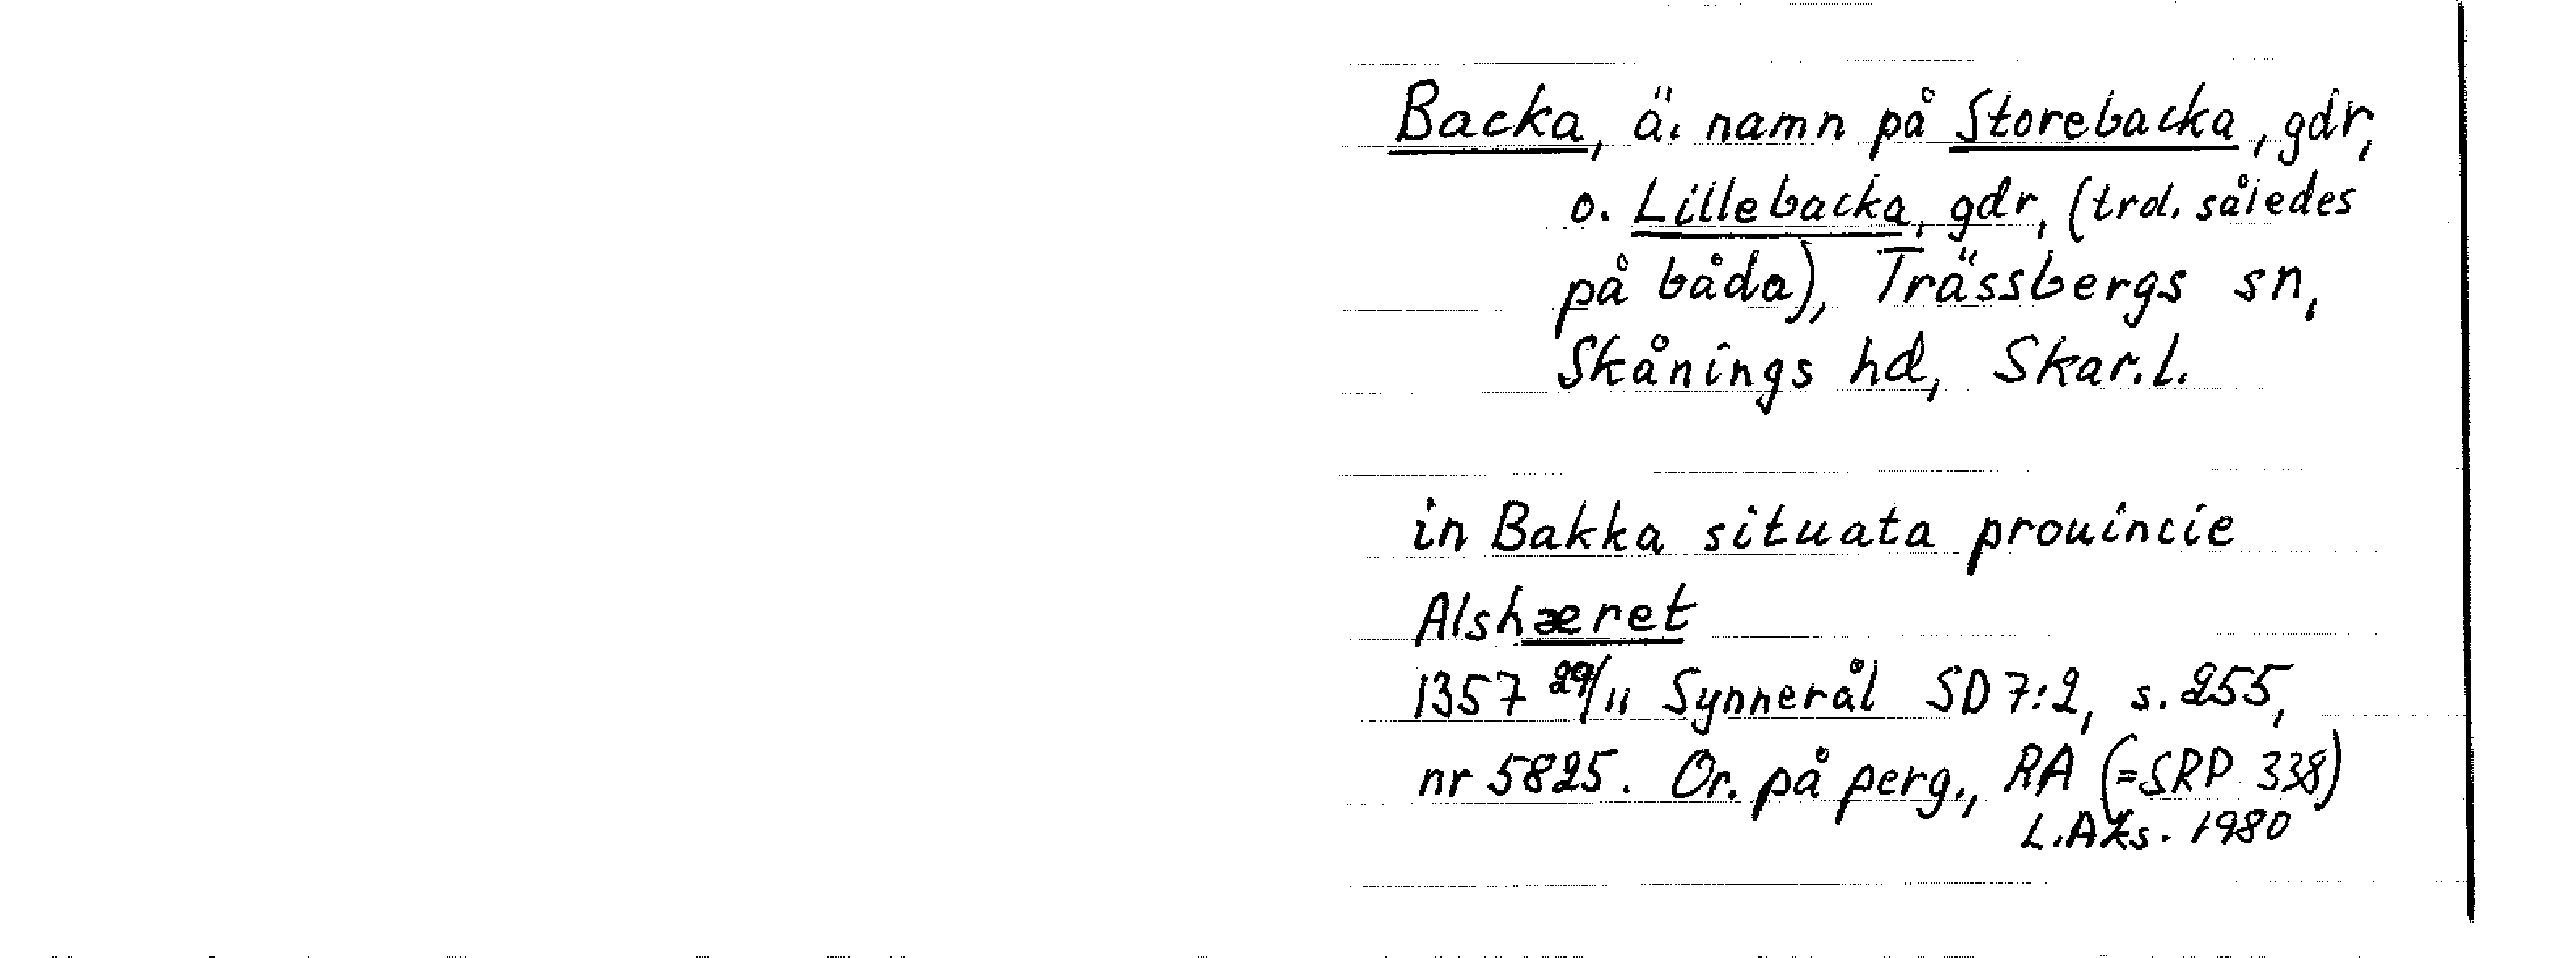 Backa, ä. namn på Storebacka, gdr,
o. Lillebacka, gdr, (trol. således
på båda), Trässbergs sn,
Skånings hd, Skar.l.
in Bakka situata prouincie
Alshæret
1357 29/11 Synnerål SD 7:2, s. 255,
nr 5825. Or. på perg., RA (=SRP 338)
L.Aks. 1980